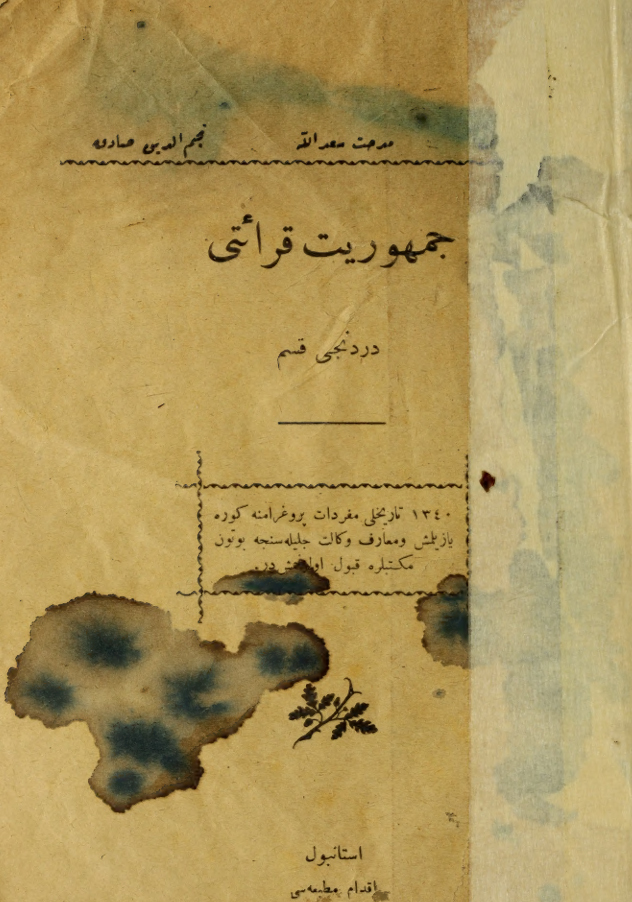 مدحت سعدالله نجم الدین صادق
جمهوریت قرائتی
دردنجی قسم
١٣٤٠ تاریخلی مفردات پروغرامنه کوره
یازیلمش ومعارف وکالت جلیله‌سنجه بوتون
مکتبلره قبول اولنمشدر.
استانبول
اقدام مطبعه‌سی